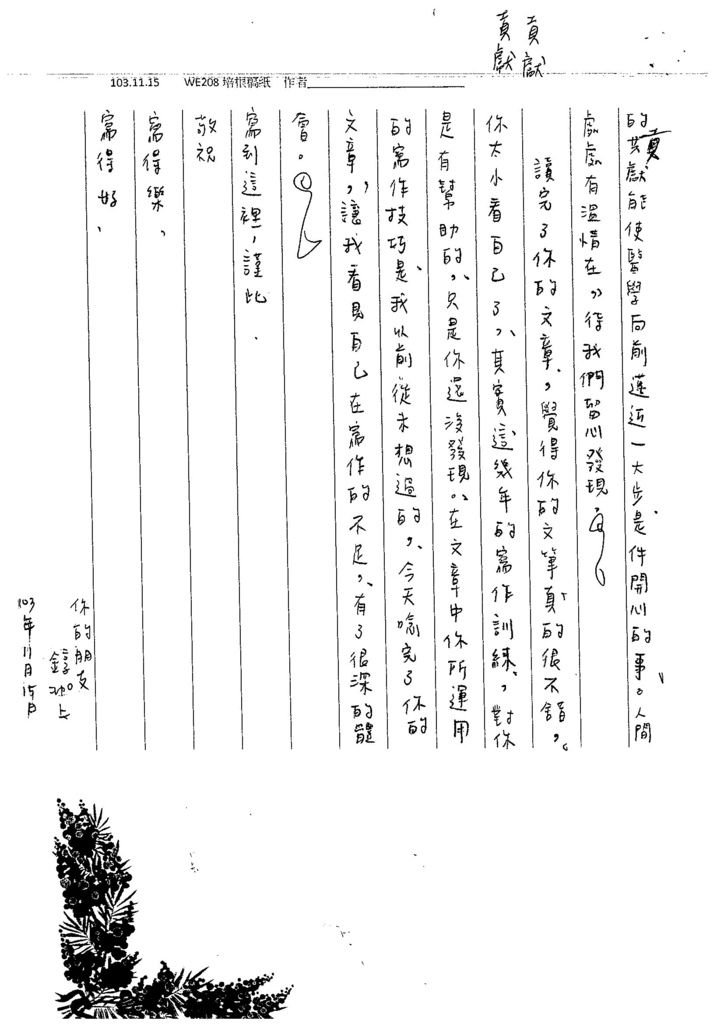 貢獻
貢獻
103.11.15 WE208 培根稿紙 作者
的貢獻能使醫學向前邁近一大步是件開心的事。人間
處處有溫情在,待我們留心發現。
讀完了你的文章,覺得你的文筆真的很不錯,
你太小看自己了,其實這幾年的寫作訓練,對你
是有幫助的,只是你還沒發現。在文章中你所運用
的寫作技巧是我以前從未想過的,今天唸完了你的
文章,讓我看見自己在寫作的不足,有了很深的體
會。
寫到這裡,謹此.
敬祝
寫得樂,
寫得好,
你的朋友
上
103年11月15日